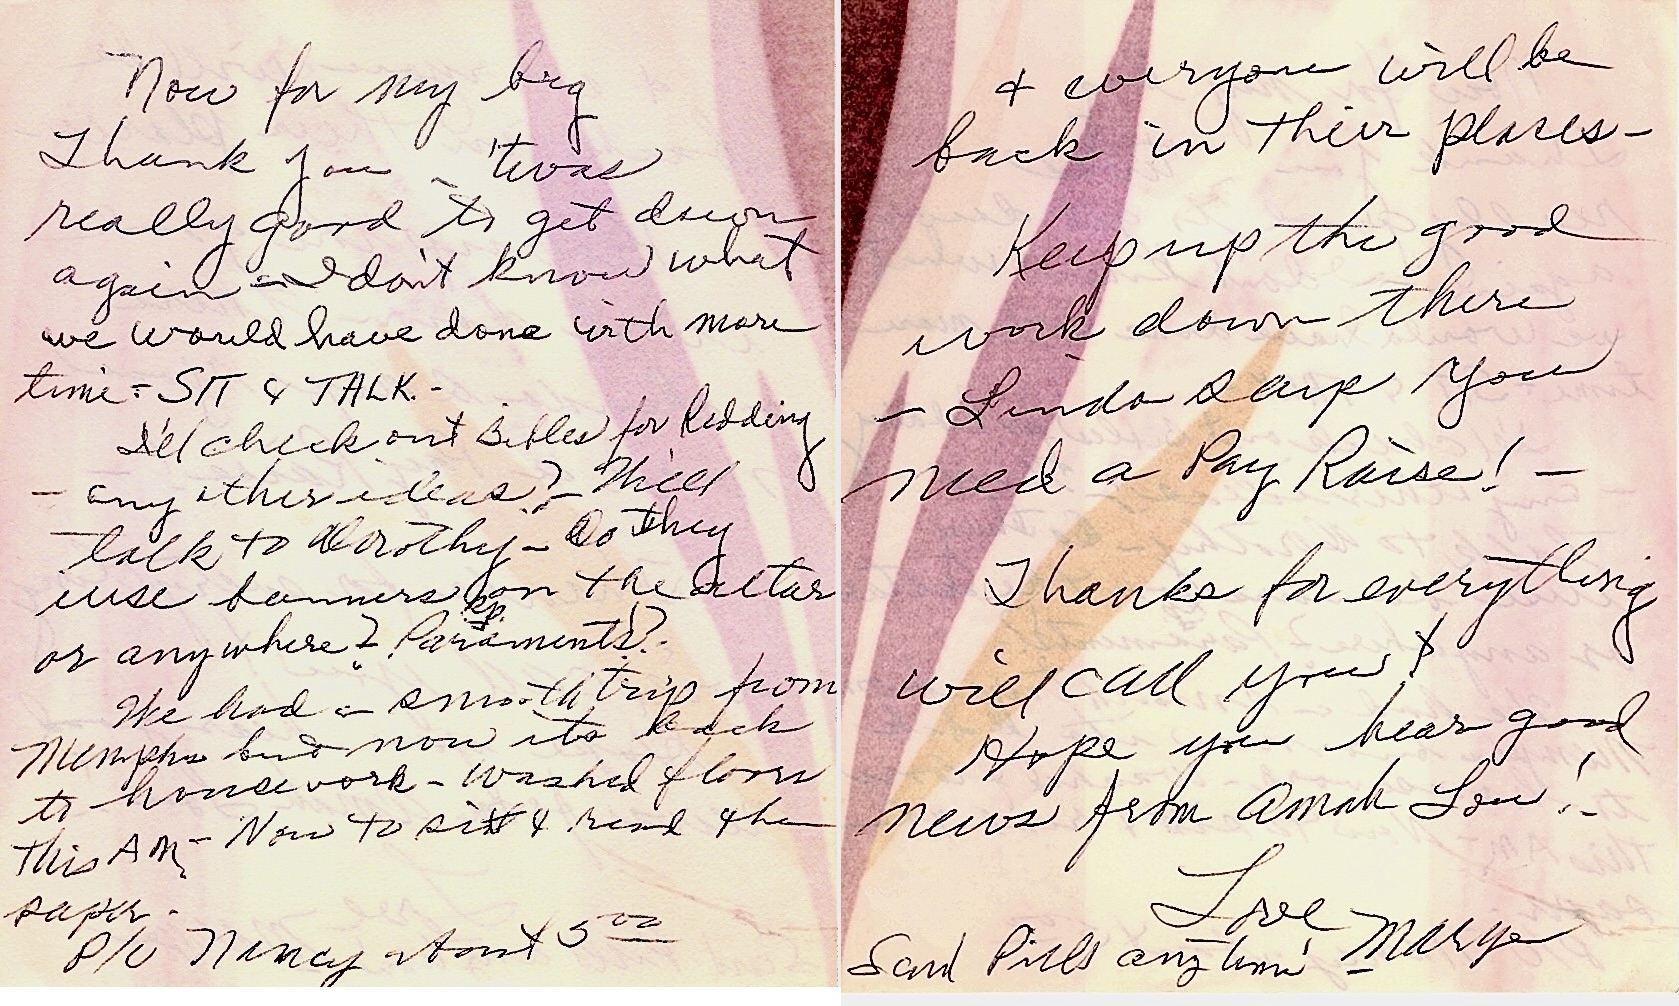 Now for my big
Thank you - 'twas
really good to get down
again - I don't know what
we would have done with more
time - SIT & TALK. -
I'll check out Bibles for Redding
- any other ideas? - Will
talk to Dorothy - Do they
use banners on the altar
or anywhere? Paraments?
sp.
We had a smooth trip from
Memphis but now its back
to housework - washed floors
this AM, - Now to sit & read the
paper -
P/U Nancy about 5 00
& everyone will be
back in their places -
Keep up the good
work down there
- Linda says you
need a Pay Raise! -
Thanks for everything
will call you!
Hope you hear good
news from Amah Lou! -
Love
Marge
Send Pills anytime